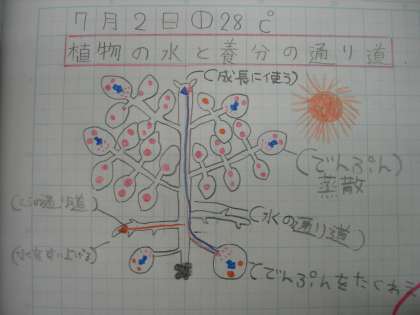 7月2日①28℃
植物の水と養分の通り道
(成長に使う)
(でんぷん)
蒸散
(水の通り道)
でんぷんをたくわえ